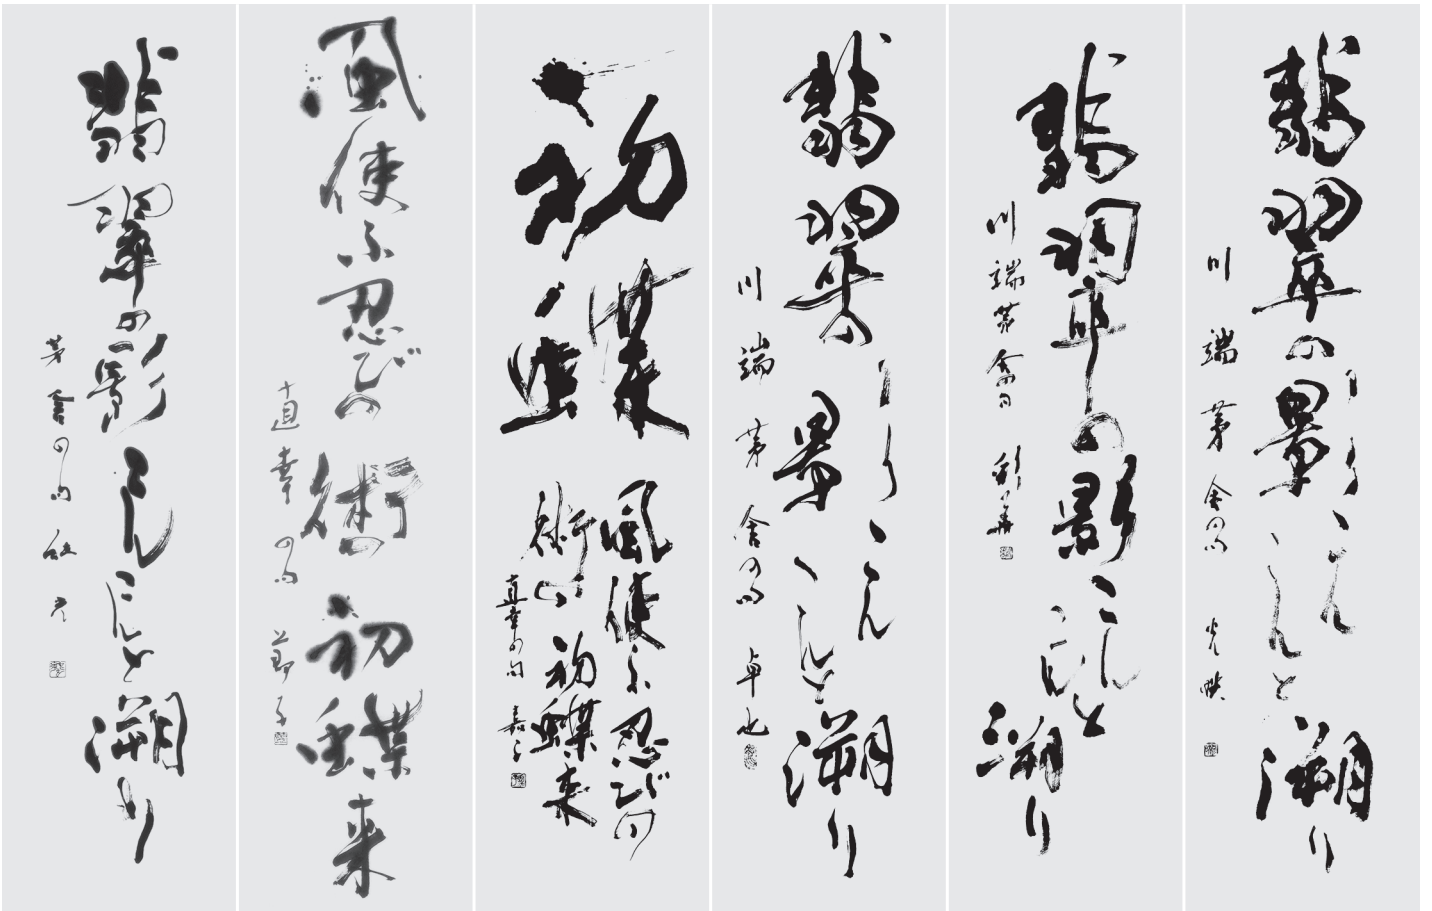 翡翠の影こんこんと溯り
川端茅舎の句
翡翠の影こんこんと溯り
川端茅舎の句 彩華
翡翠の影こんこんと溯り
川端茅舎の句 卓也
初蝶
風使ふ忍びの
術の初蝶来
直幸の句
風使ふ忍びの術の初蝶来
直幸の句 節子
翡翠の影こんこんと溯り
茅舎の句